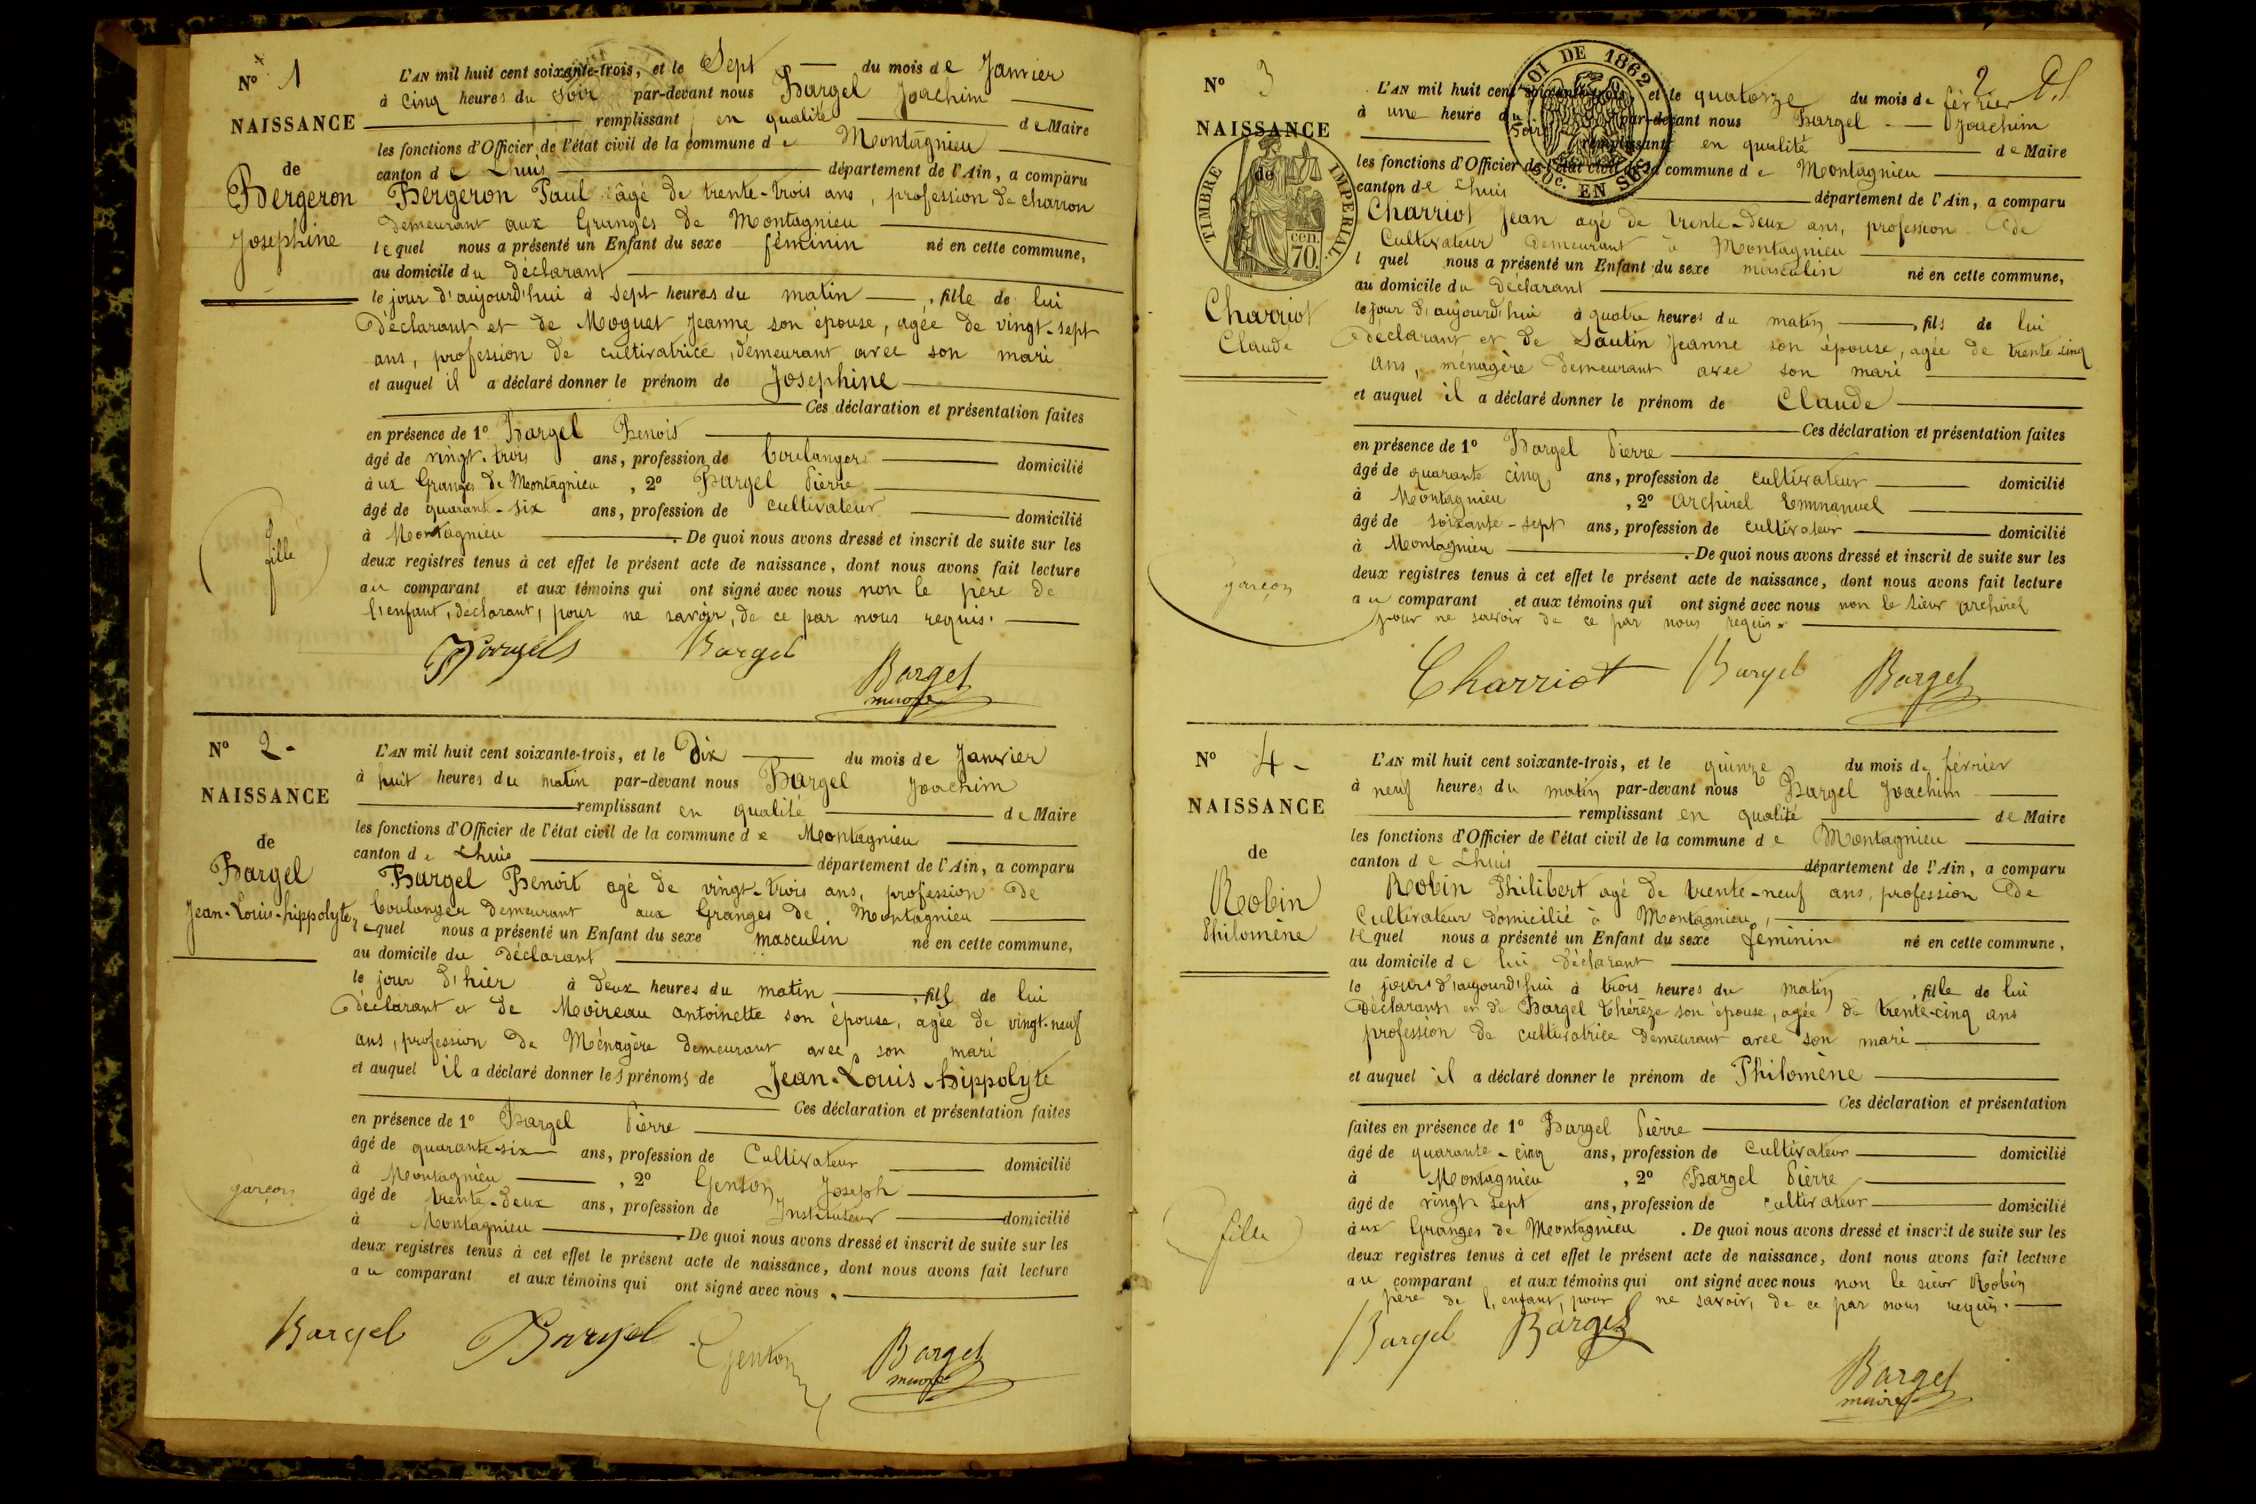 N° 1
NAISSANCE
de
Bergeron
Josephine
fille
L'AN mil huit cent soixante-trois, et le Sept du mois de Janvier
à cinq heures du soir par-devant nous Bargel Joachim
remplissant en qualité de Maire
les fonctions d'Officier de l'état civil de la commune de Montagnieu
canton de Lhuis département de l'Ain, a comparu
Bergeron Paul âgé de trente-trois ans, profession de charron
demeurant aux Granges de Montagnieu
lequel nous a présenté un Enfant du sexe féminin né en cette commune,
au domicile du déclarant
le jour d'aujourd'hui à sept heures du matin, fille de lui
Déclarant et de Moguet Jeanne son épouse, agée de vingt-sept
ans, profession de cultivatrice, demeurant avec son mari
et auquel il a déclaré donner le prénom de Josephine
Ces déclaration et présentation faites
en présence de 1° Bargel Benoit
âgé de vingt-trois ans, profession de boulanger domicilié
àux Granges de Montagnieu, 2° Bargel Pierre
âgé de quarante-six ans, profession de cultivateur domicilié
à Montagnieu. De quoi nous avons dressé et inscrit de suite sur les
deux registres tenus à cet effet le présent acte de naissance, dont nous avons fait lecture
au comparant et aux témoins qui ont signé avec nous non le père de
l'enfant, déclarant, pour ne savoir, de ce par nous requis.
Bargel Bargel Bargel
maire
N° 2 -
NAISSANCE
de
Bargel
Jean-Louis-hippolyte
garçon
L'AN mil huit cent soixante-trois, et le Dix du mois de Janvier
à huit heures du matin par-devant nous Bargel Joachim
remplissant en qualité de Maire
les fonctions d'Officier de l'état civil de la commune de Montagnieu
canton de Lhuis département de l'Ain, a comparu
Bargel Benoit agé de vingt-trois ans, profession de
boulanger demeurant aux Granges de Montagnieu
lequel nous a présenté un Enfant du sexe masculin né en cette commune,
au domicile du déclarant
le jour d'hier à deux heures du matin, fils de lui
déclarant et de Moireau antoinette son épouse, agée de vingt-neuf
ans, profession de Ménagère demeurant avec son mari
et auquel il a déclaré donner les prénoms de Jean-Louis-hippolyte
Ces déclaration et présentation faites
en présence de 1° Bargel Pierre
âgé de quarante-six ans, profession de Cultivateur domicilié
à Montagnieu, 2° Genton Joseph
âgé de trente-deux ans, profession de Instituteur domicilié
à Montagnieu. De quoi nous avons dressé et inscrit de suite sur les
deux registres tenus à cet effet le présent acte de naissance, dont nous avons fait lecture
au comparant et aux témoins qui ont signé avec nous.
Bargel Bargel Genton Bargel
maire
2
N° 3
NAISSANCE
de
TIMBRE IMPERIAL
cen. 70.
Charriot
Claude
garçon
LOI DE 1862
L'AN mil huit cent soixante-trois, et le quatorze du mois de février
à une heure du soir par-devant nous Bargel Joachim
remplissant en qualité de Maire
les fonctions d'Officier de l'état civil de la commune de Montagnieu
canton de Lhuis département de l'Ain, a comparu
Charriot Jean agé de trente-deux ans, profession de
Cultivateur demeurant à Montagnieu
l quel nous a présenté un Enfant du sexe masculin né en cette commune,
au domicile du déclarant
le jour d'aujourd'hui à quatre heures du matin, fils de lui
déclarant et de Sautin Jeanne son épouse, agée de trente-cinq
ans, ménagère demeurant avec son mari
et auquel il a déclaré donner le prénom de Claude
Ces déclaration et présentation faites
en présence de 1° Bargel Pierre
âgé de quarante cinq ans, profession de cultivateur domicilié
à Montagnieu, 2° archirel Emmanuel
âgé de soixante-sept ans, profession de cultivateur domicilié
à Montagnieu. De quoi nous avons dressé et inscrit de suite sur les
deux registres tenus à cet effet le présent acte de naissance, dont nous avons fait lecture
au comparant et aux témoins qui ont signé avec nous non le sieur archirel
pour ne savoir de ce par nous requis.
Charriot Bargel Bargel
N° 4 -
NAISSANCE
de
Robin
Philomène
fille
L'AN mil huit cent soixante-trois, et le quinze du mois de février
à neuf heures du matin par-devant nous Bargel Joachim
remplissant en qualité de Maire
les fonctions d'Officier de l'état civil de la commune de Montagnieu
canton de Lhuis département de l'Ain, a comparu
Robin Philibert agé de trente-neuf ans, profession de
Cultivateur domicilié à Montagnieu,
lequel nous a présenté un Enfant du sexe féminin né en cette commune,
au domicile de lui déclarant
le jour d'aujourd'hui à trois heures du matin, fille de lui
Déclarant et de Bargel Thérèze son épouse, agée de trente-cinq ans
profession de cultivatrice demeurant avec son mari
et auquel il a déclaré donner le prénom de Philomène
Ces déclaration et présentation
faites en présence de 1° Bargel Pierre
âgé de quarante-cinq ans, profession de Cultivateur domicilié
à Montagnieu, 2° Bargel Pierre
âgé de vingt sept ans, profession de cultivateur domicilié
àux Granges de Montagnieu. De quoi nous avons dressé et inscrit de suite sur les
deux registres tenus à cet effet le présent acte de naissance, dont nous avons fait lecture
au comparant et aux témoins qui ont signé avec nous non le sieur Robin
père de l'enfant, pour ne savoir, de ce par nous requis.
Bargel Bargel
Bargel
maire